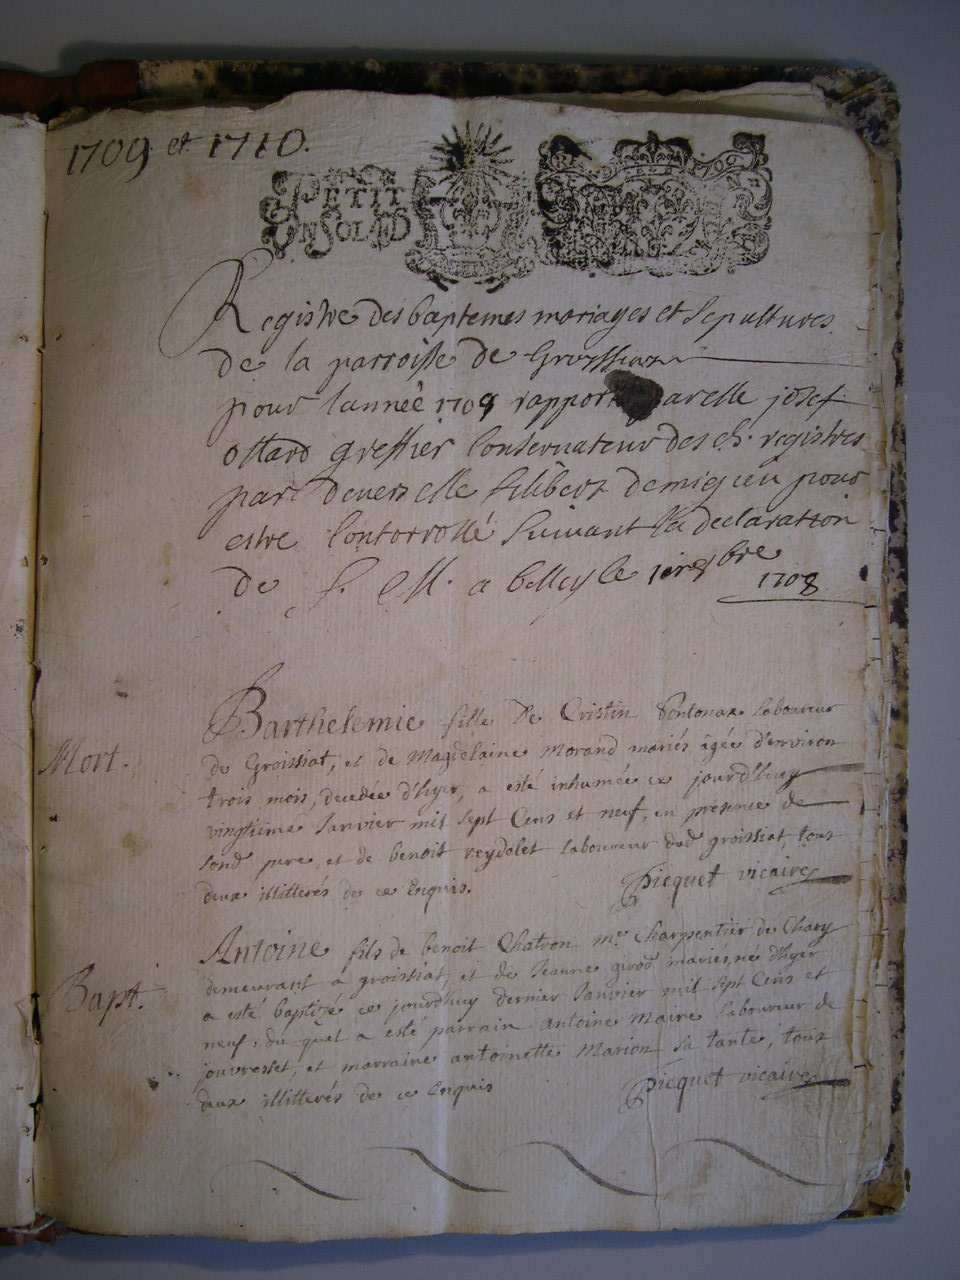 1709 et 1710.
PETIT
UN SOL 4D
Registre des baptemes mariages et sepultures
de la parroisse de
pour lannée 1709 rapporté par Mre josef
ottard greffier Conservateur des registres
par devers Filibert demigieu pour
estre Contorrollé Suivant la declaration
de S. M. a belley le 1er bre
1708
Mort.
Barthelemie fille de Cristin Pontonax laboureur
de Groissiat, et de Magdelaine Morand mariés âgée d'environ
trois mois, decedée d'hyer, a esté inhumée ce jourd'huy
vingtieme Janvier mil sept Cens et neuf, en presence de
sond pere, et de benoit reydelet laboureur dud groissiat, tous
deux illitterés de ce Enquis.
Picquet vicaire
Bapt.
Antoine fils de benoit Chatron me. Charpentier de Chary
demeurant a groissiat, et de Jeanne girod mariés, né d'hyer
a esté baptizé ce jourdhuy dernier Janvier mil sept Cens et
neuf: du quel a esté parrain antoine Maire laboureur de
jouvresset, et marraine antoinette Marion sa tante, tous
deux illitterés de ce Enquis
Picquet vicaire